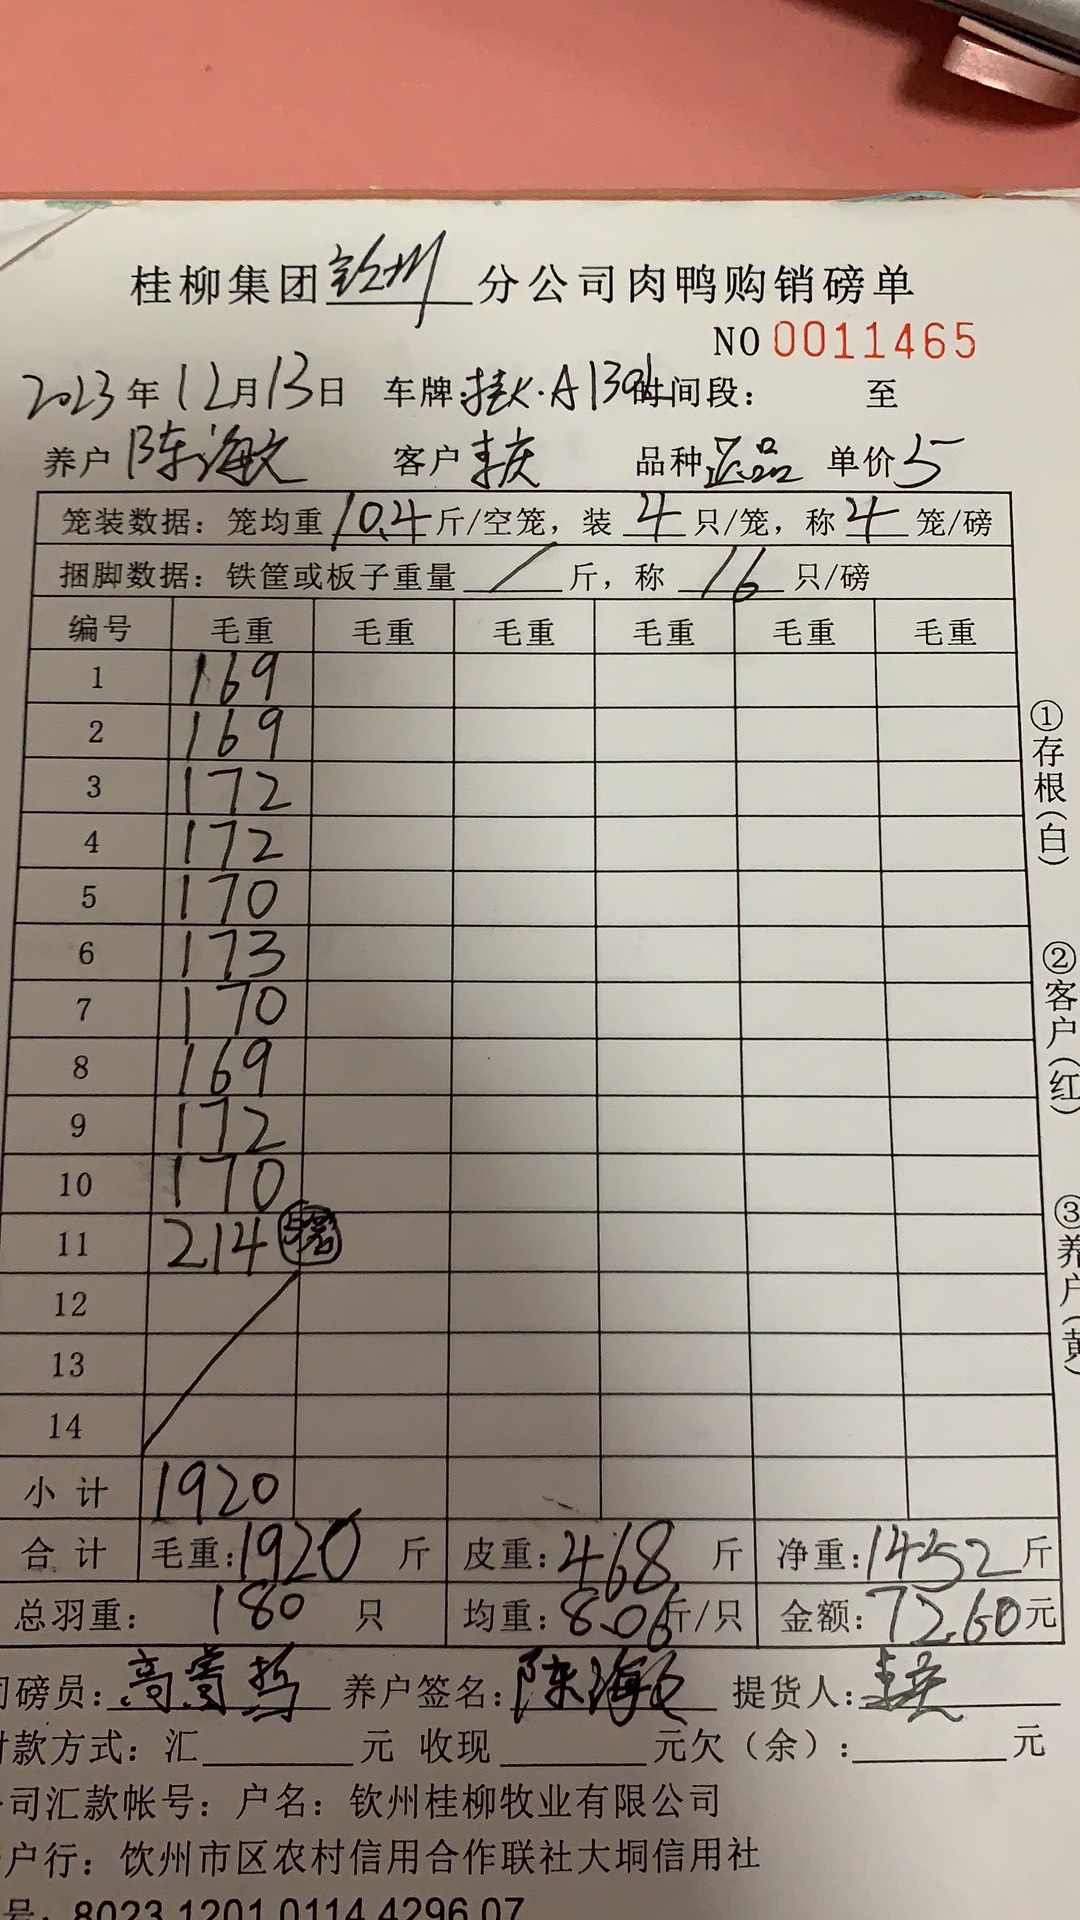 桂柳集团钦州分公司肉鸭购销磅单
NO 0011465
2023年12月13日 车牌:桂K·A139 时间段: 至
养户 陈海敏 客户 李庆 品种 正品 单价 5
笼装数据:笼均重 10.4 斤/空笼,装 4 只/笼,称 4 笼/磅
捆脚数据:铁筐或板子重量 / 斤,称 16 只/磅
编号 毛重 毛重 毛重 毛重 毛重 毛重
1 169
2 169
3 172
4 172
5 170
6 173
7 170
8 169
9 172
10 170
11 214
12
13
14
小计 1920
合计 毛重:1920 斤 皮重:468 斤 净重:1452 斤
总羽重: 180 只 均重:8.06斤/只 金额:7260元
磅员: 养户签名:陈海敏 提货人:李庆
款方式:汇 元 收现 元欠(余): 元
司汇款帐号:户名:钦州桂柳牧业有限公司
户行:饮州市区农村信用合作联社大垌信用社
号:8023 1201 0114 4296 07
①存根(白)
②客户(红)
③养户(黄)